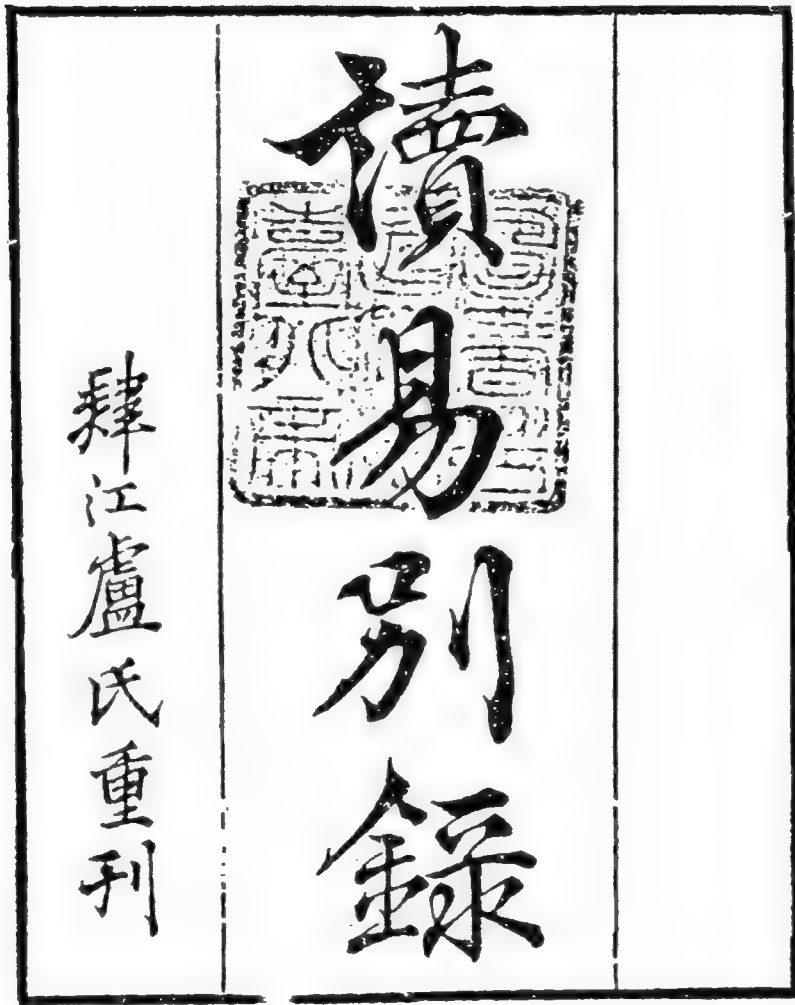 讀易別錄
肆江盧氏重刊